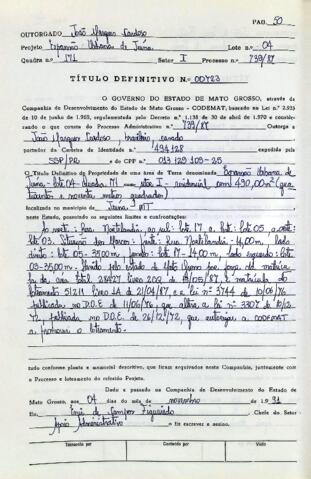 PAG. 50
OUTORGADO João Marques Cardoso
Projeto Expansão Urbana de Jaúna. Lote n.o 04
Quadra n.o 171 Setor I Processo n.o 739/87
TÍTULO DEFINITIVO N.o 00723
O GOVERNO DO ESTADO DE MATO GROSSO, através da
Companhia de Desenvolvimento do Estado de Mato Grosso - CODEMAT, baseado na Lei n.o 2.925
de 10 de junho de 1.969, regulamentada pelo Decreto n.o 1.138 de 30 de abril de 1.970 e considerando
o que consta do Processo Administrativo n.o 739/87 Outorga a
João Marques Cardoso, brasileiro, casado
portador da Carteira de Identidade n.o 494128 expedida pela
SSP/PR e do CPF n.o 013129109-25
O Título Definitivo de Propriedade de uma área de Terra denominada Expansão Urbana de
Lote 04 Quadra 171 Setor I - residencial com 490,00m² (quatrocentos
e noventa metros quadrados)
localizada no município de MT
Neste Estado, passando os seguintes limites e confrontações:
Ao norte: Rua Nortilandia, ao sul: lote 17, a leste: lote 05, a oeste:
lote 03. frente: Rua Nortilandia - 14,00m, lado
direito: lote 05 - 35,00m, fundo: lote 17 - 14,00m, lado esquerdo: lote
03 - 35,00m.
da área total 28427 Livro 2 de 19/05/87, e matrícula do
loteamento 51211 Livro de 21/04/87, e a Lei nº 3744 de 10/06/76
publicada no D.O.E de 11/06/76, que altera a lei nº 3307 de
72, publicada no D.O.E de 26/12/72, que autoriza a CODEMAT
a promover o loteamento.
tudo conforme planta e memorial descritivo, que foram arquivados nesta Companhia, juntamente com
o Processo e loteamento do referido Projeto.
Dado e passado na Companhia de Desenvolvimento do Estado de
Mato Grosso, aos 04 dias do mês de novembro de 1.991
Eu, de Campos Figueiredo Chefe do Setor
Apoio Administrativo o fiz escrever e assino.
Transcrito por Conferido por Visto